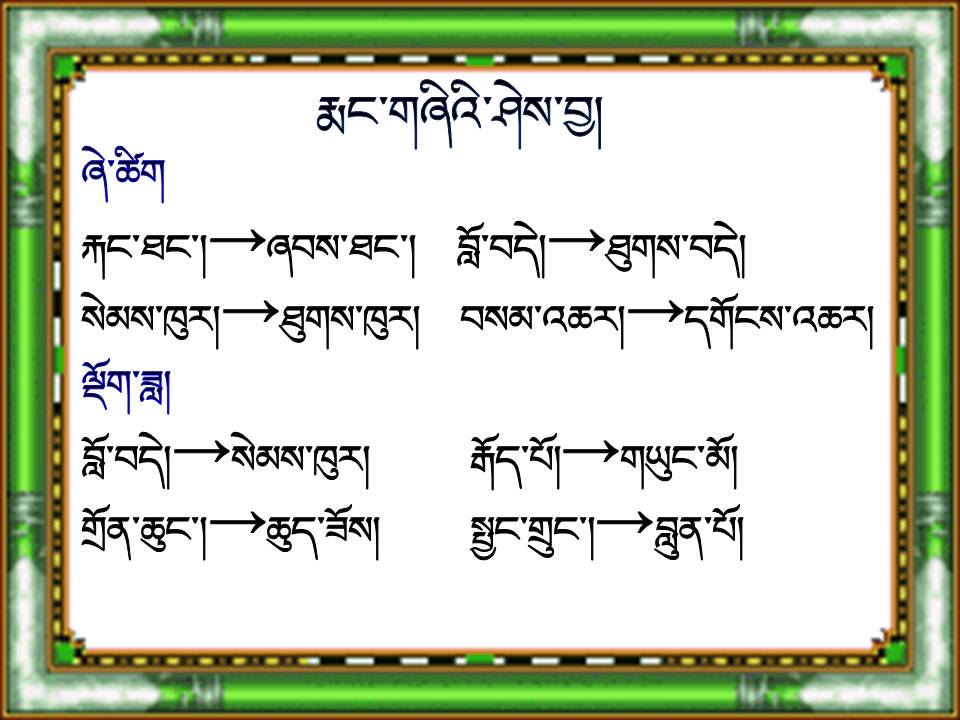 རྨང་གཞིའི་ཤེས་བྱ།
ཞེ་ཚིག
རྐང་ཐང་།→ཞབས་ཐང་། བློ་བདེ།→ཐུགས་བདེ།
སེམས་ཁུར།→ཐུགས་ཁུར། བསམ་འཆར།→དགོངས་འཆར།
ལྡོག་ཟླ།
བློ་བདེ།→སེམས་ཁུར། རྒོད་པོ།→གཡུང་མོ།
གྲོན་ཆུང་།→ཆུད་ཟོས། སྤྱང་གྲུང་།→བླུན་པོ།